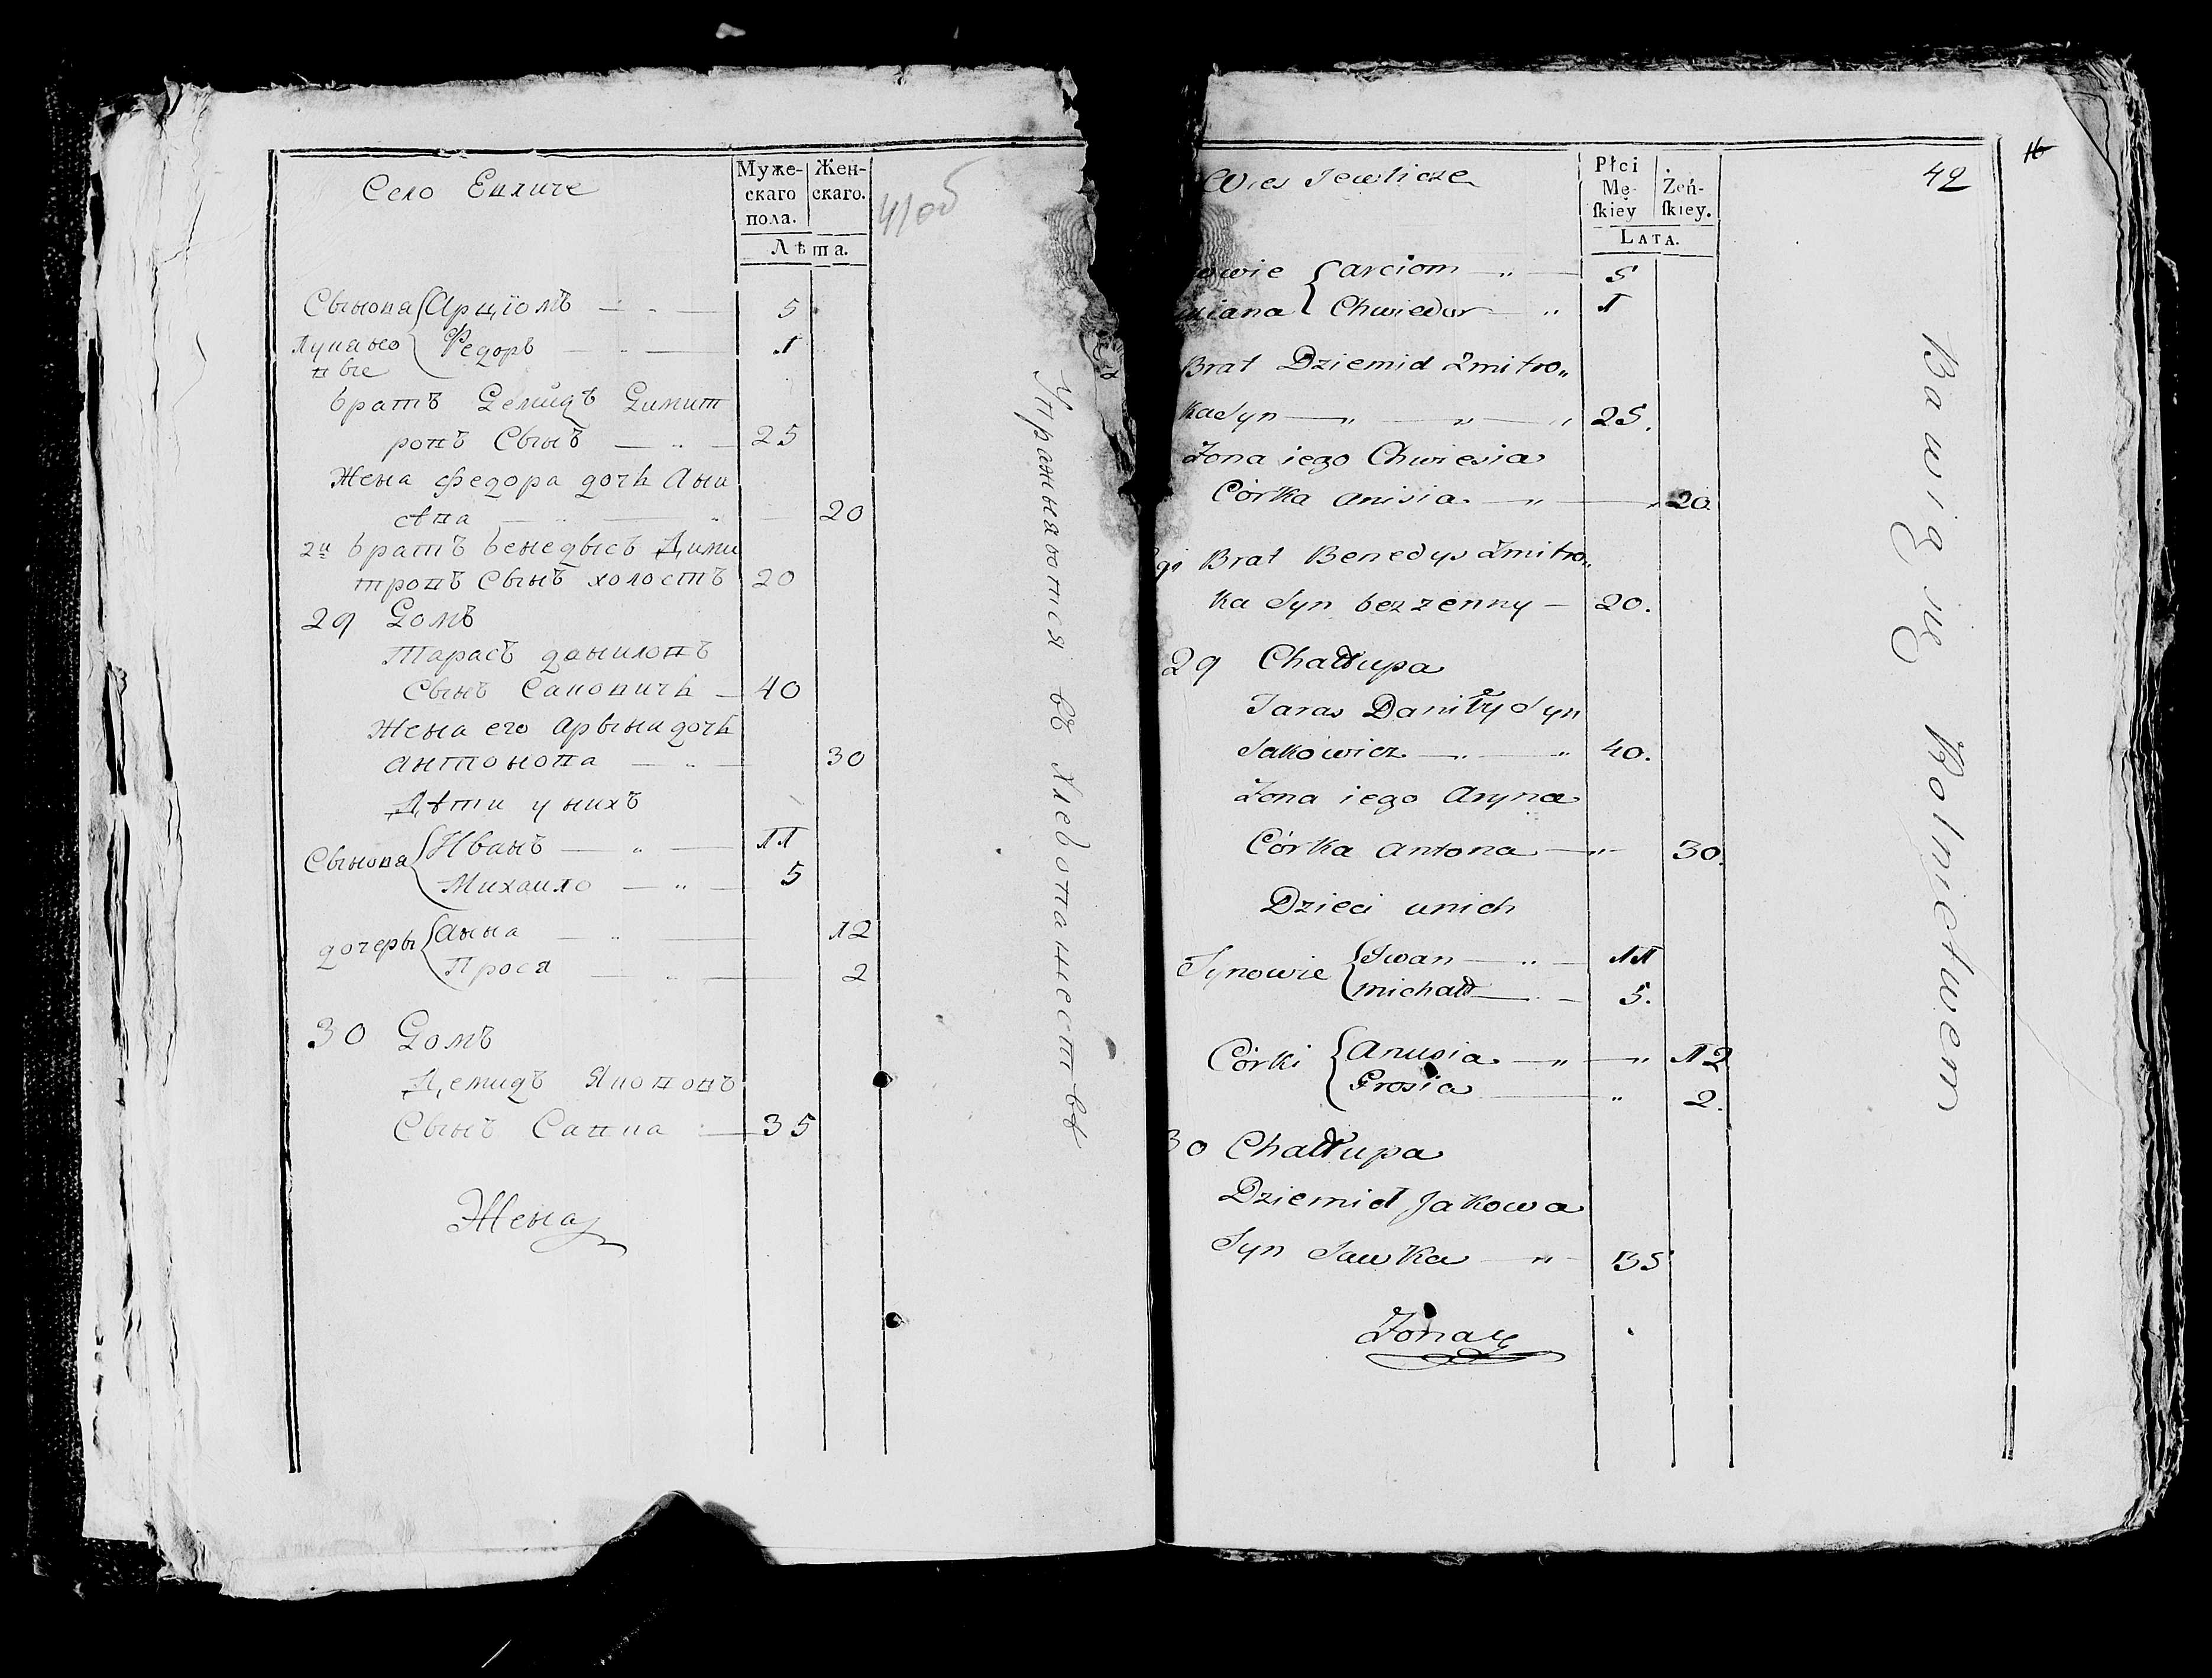 Село Евличе
Муже-
скаго
пола.
Жен-
скаго.
Лѣта.
41об
Сынова Арціомъ 5
Лукьяно
вые
Федоръ 1
братъ Демидъ Димит
ровъ Сынъ 25
Жена Федора дочь Ани
сѣва 20
2й братъ бенедысъ Дими
тровъ Сынъ холостъ 20
29 Домъ
Тарасъ даниловъ
Сынъ Саковичь 40
Жена его Арына дочь
антонова 30
Дѣти у нихъ
Сынова Иванъ 11
Михаило 5
дочеры Анна 12
Прося 2
30 Домъ
Демидъ Якововъ
Сынъ Савка 35
Жена
Упражняются въ хлебопашествѣ
Wies Jewlicze
Płci
Mę-
skiey
Żeń-
skiey.
Lata.
42
16
owie Arciom 5
Chwiedor 1
Brat Dziemid Zmitro„
ka Syn 25.
Żona iego Chwiesia
Córka Anisia 20.
gi Brat Benedys Zmitro„
ka Syn bezzenny 20.
29 Chałłupa
Taras Daniły Syn
Sakowicz 40.
Żona iego Aryna
Córka Antona 30.
Dzieci unich
Synowie Jwan 11
michałł 5.
Córki Anusia 12
Prosia 2.
30 Chałłupa
Dziemid Jakowa
Syn Sawka 35
Żona
Bawią się Rolnictwem